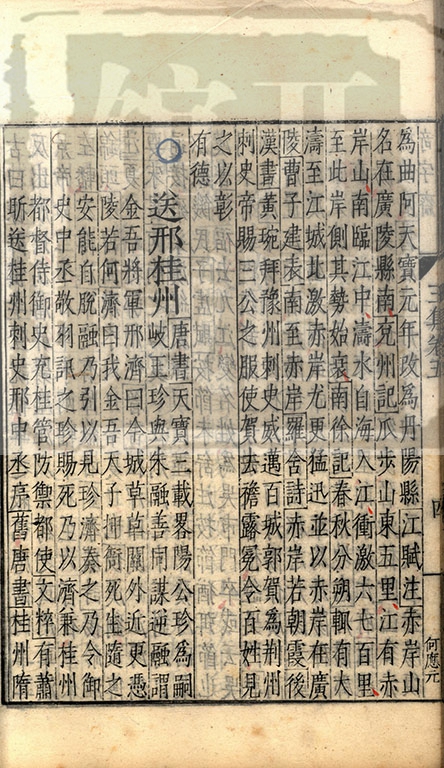 為曲阿天寶元年改為丹陽縣江賦注赤岸山
名在廣陵縣南兖州記瓜歩山東五里江有赤
岸山南臨江中濤水自海入江衝激六七百里
至此岸側其勢始衰南徐記春秋分朔輒有大
濤至江城北激赤岸尤更猛迅並以赤岸在廣
陵曹子建表南至赤岸羅含詩赤岸若朝霞後
漢書黄琬拜豫州刺史威邁百城郭賀為荆州
刺史帝賜三公之服使去襜露冕令百姓見
之以彰
有德
送邢桂州唐書天寶三載畧陽公珍為嗣
岐王珍與朱融善用謀逆融謂
金吾將軍邢濟曰今城草草關外近更憑
陵若何濟曰我金吾天子押衙死生隨之
安能自脫融乃引以見珍濟奏之乃令御
史中丞敬羽訊之珍賜死乃以濟兼桂州
都督侍御史充桂管防禦都使文粹有蕭
昕送桂州刺史邢中丞序舊唐書桂州隋
何應元